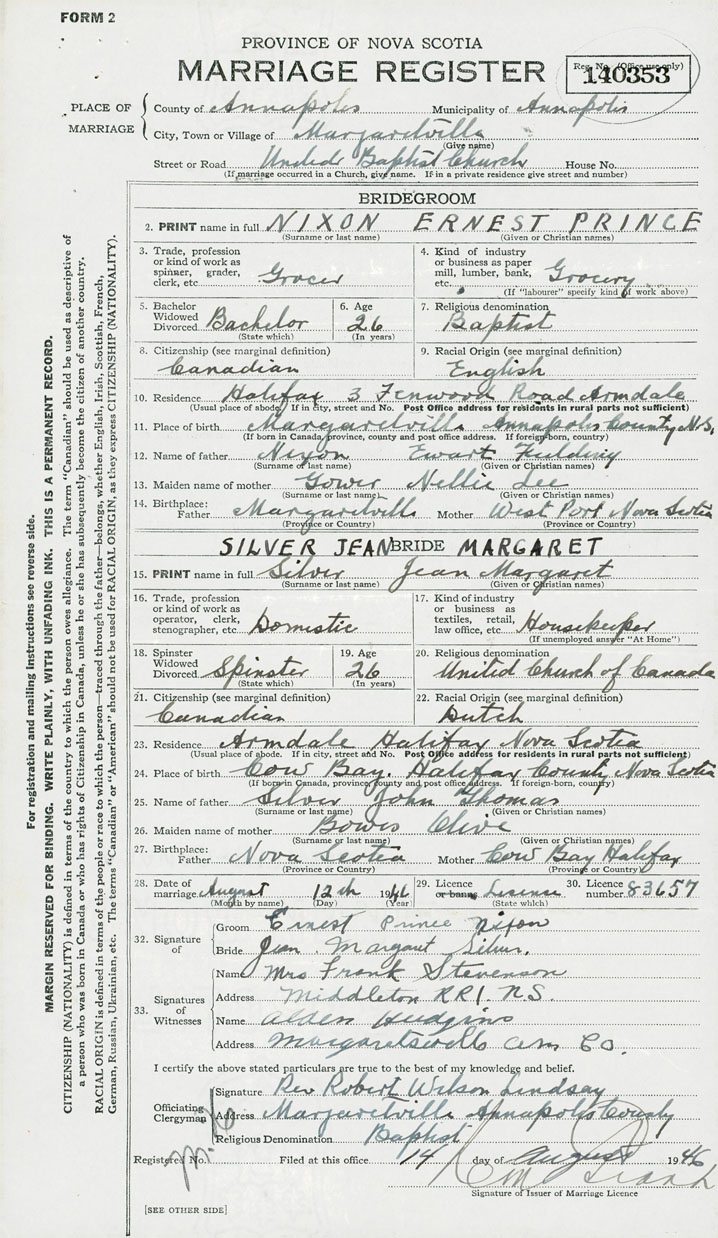 FORM 2
PROVINCE OF NOVA SCOTIA
MARRIAGE REGISTER
Reg. No. (Office use only)
140353
PLACE OF MARRIAGE
County of Annapolis Municipality of Annapolis
City, Town or Village of Margaretville
(Give name)
Street or Road United Baptist Church House No.
(If marriage occurred in a Church, give name. If in a private residence give street and number)
BRIDEGROOM
2. PRINT name in full NIXON ERNEST PRINCE
(Surname or last name) (Given or Christian names)
3. Trade, profession or kind of work as spinner, grader, clerk, etc. Grocer
4. Kind of industry or business as paper mill, lumber, bank, etc. Grocery
(If "labourer" specify kind of work above)
5. Bachelor Widowed Divorced Bachelor
(State which)
6. Age 26
(In years)
7. Religious denomination
Baptist
8. Citizenship (see marginal definition)
Canadian
9. Racial Origin (see marginal definition)
English
10. Residence Halifax 3 Fenwood Road Armdale
(Usual place of abode. If in city, street and No. Post Office address for residents in rural parts not sufficient)
11. Place of birth Margaretville Annapolis County N.S.
(If born in Canada, province, county and post office address. If foreign-born, country)
12. Name of father Nixon Ewart Fielding
(Surname or last name) (Given or Christian names)
13. Maiden name of mother Gower Nellie Lee
(Surname or last name) (Given or Christian names)
14. Birthplace: Father Margaretville Mother West Port Nova Scotia
(Province or Country) (Province or Country)
SILVER JEAN BRIDE MARGARET
15. PRINT name in full Silver Jean Margaret
(Surname or last name) (Given or Christian names)
16. Trade, profession or kind of work as operator, clerk, stenographer, etc. Domestic
17. Kind of industry or business as textiles, retail, law office, etc. Housekeeper
(If unemployed answer "At Home")
18. Spinster Widowed Divorced Spinster
(State which)
19. Age 26
(In years)
20. Religious denomination
United Church of Canada
21. Citizenship (see marginal definition)
Canadian
22. Racial Origin (see marginal definition)
Dutch
23. Residence Armdale Halifax Nova Scotia
(Usual place of abode. If in city, street and No. Post Office address for residents in rural parts not sufficient)
24. Place of birth Cow Bay. Halifax County Nova Scotia
(If born in Canada, province, county and post office address. If foreign-born, country)
25. Name of father Silver John Thomas
(Surname or last name) (Given or Christian names)
26. Maiden name of mother Bowes Olive
(Surname or last name) (Given or Christian names)
27. Birthplace: Father Nova Scotia Mother Cow Bay Halifax
(Province or Country) (Province or Country)
28. Date of marriage August 12th 1946
(Month by name) (Day) (Year)
29. Licence or banns License
(State which)
30. Licence number 83657
32. Signature of
Groom Ernest Prince Nixon
Bride Jean Margaret Silver.
33. Signatures of Witnesses
Name Mrs Frank Stevenson
Address Middleton RR1. N.S.
Name Alden Hudgins
Address Margaretsville Ann Co.
I certify the above stated particulars are true to the best of my knowledge and belief.
Officiating Clergyman
Signature Rev Robert Wilson Lindsay
Address Margaretville Annapolis County
Religious Denomination Baptist
Registered No. Filed at this office 14 day of August 1946
Signature of Issuer of Marriage Licence
[SEE OTHER SIDE]
For registration and mailing instructions see reverse side.
MARGIN RESERVED FOR BINDING. WRITE PLAINLY, WITH UNFADING INK. THIS IS A PERMANENT RECORD.
CITIZENSHIP (NATIONALITY) is defined in terms of the country to which the person owes allegiance. The term "Canadian" should be used as descriptive of
a person who was born in Canada or who has rights of Citizenship in Canada, unless he or she has subsequently become the citizen of another country.
RACIAL ORIGIN is defined in terms of the people or race to which the person—traced through the father—belongs, whether English, Irish, Scottish, French,
German, Russian, Ukrainian, etc. The terms "Canadian" or "American" should not be used for RACIAL ORIGIN, as they express CITIZENSHIP (NATIONALITY).